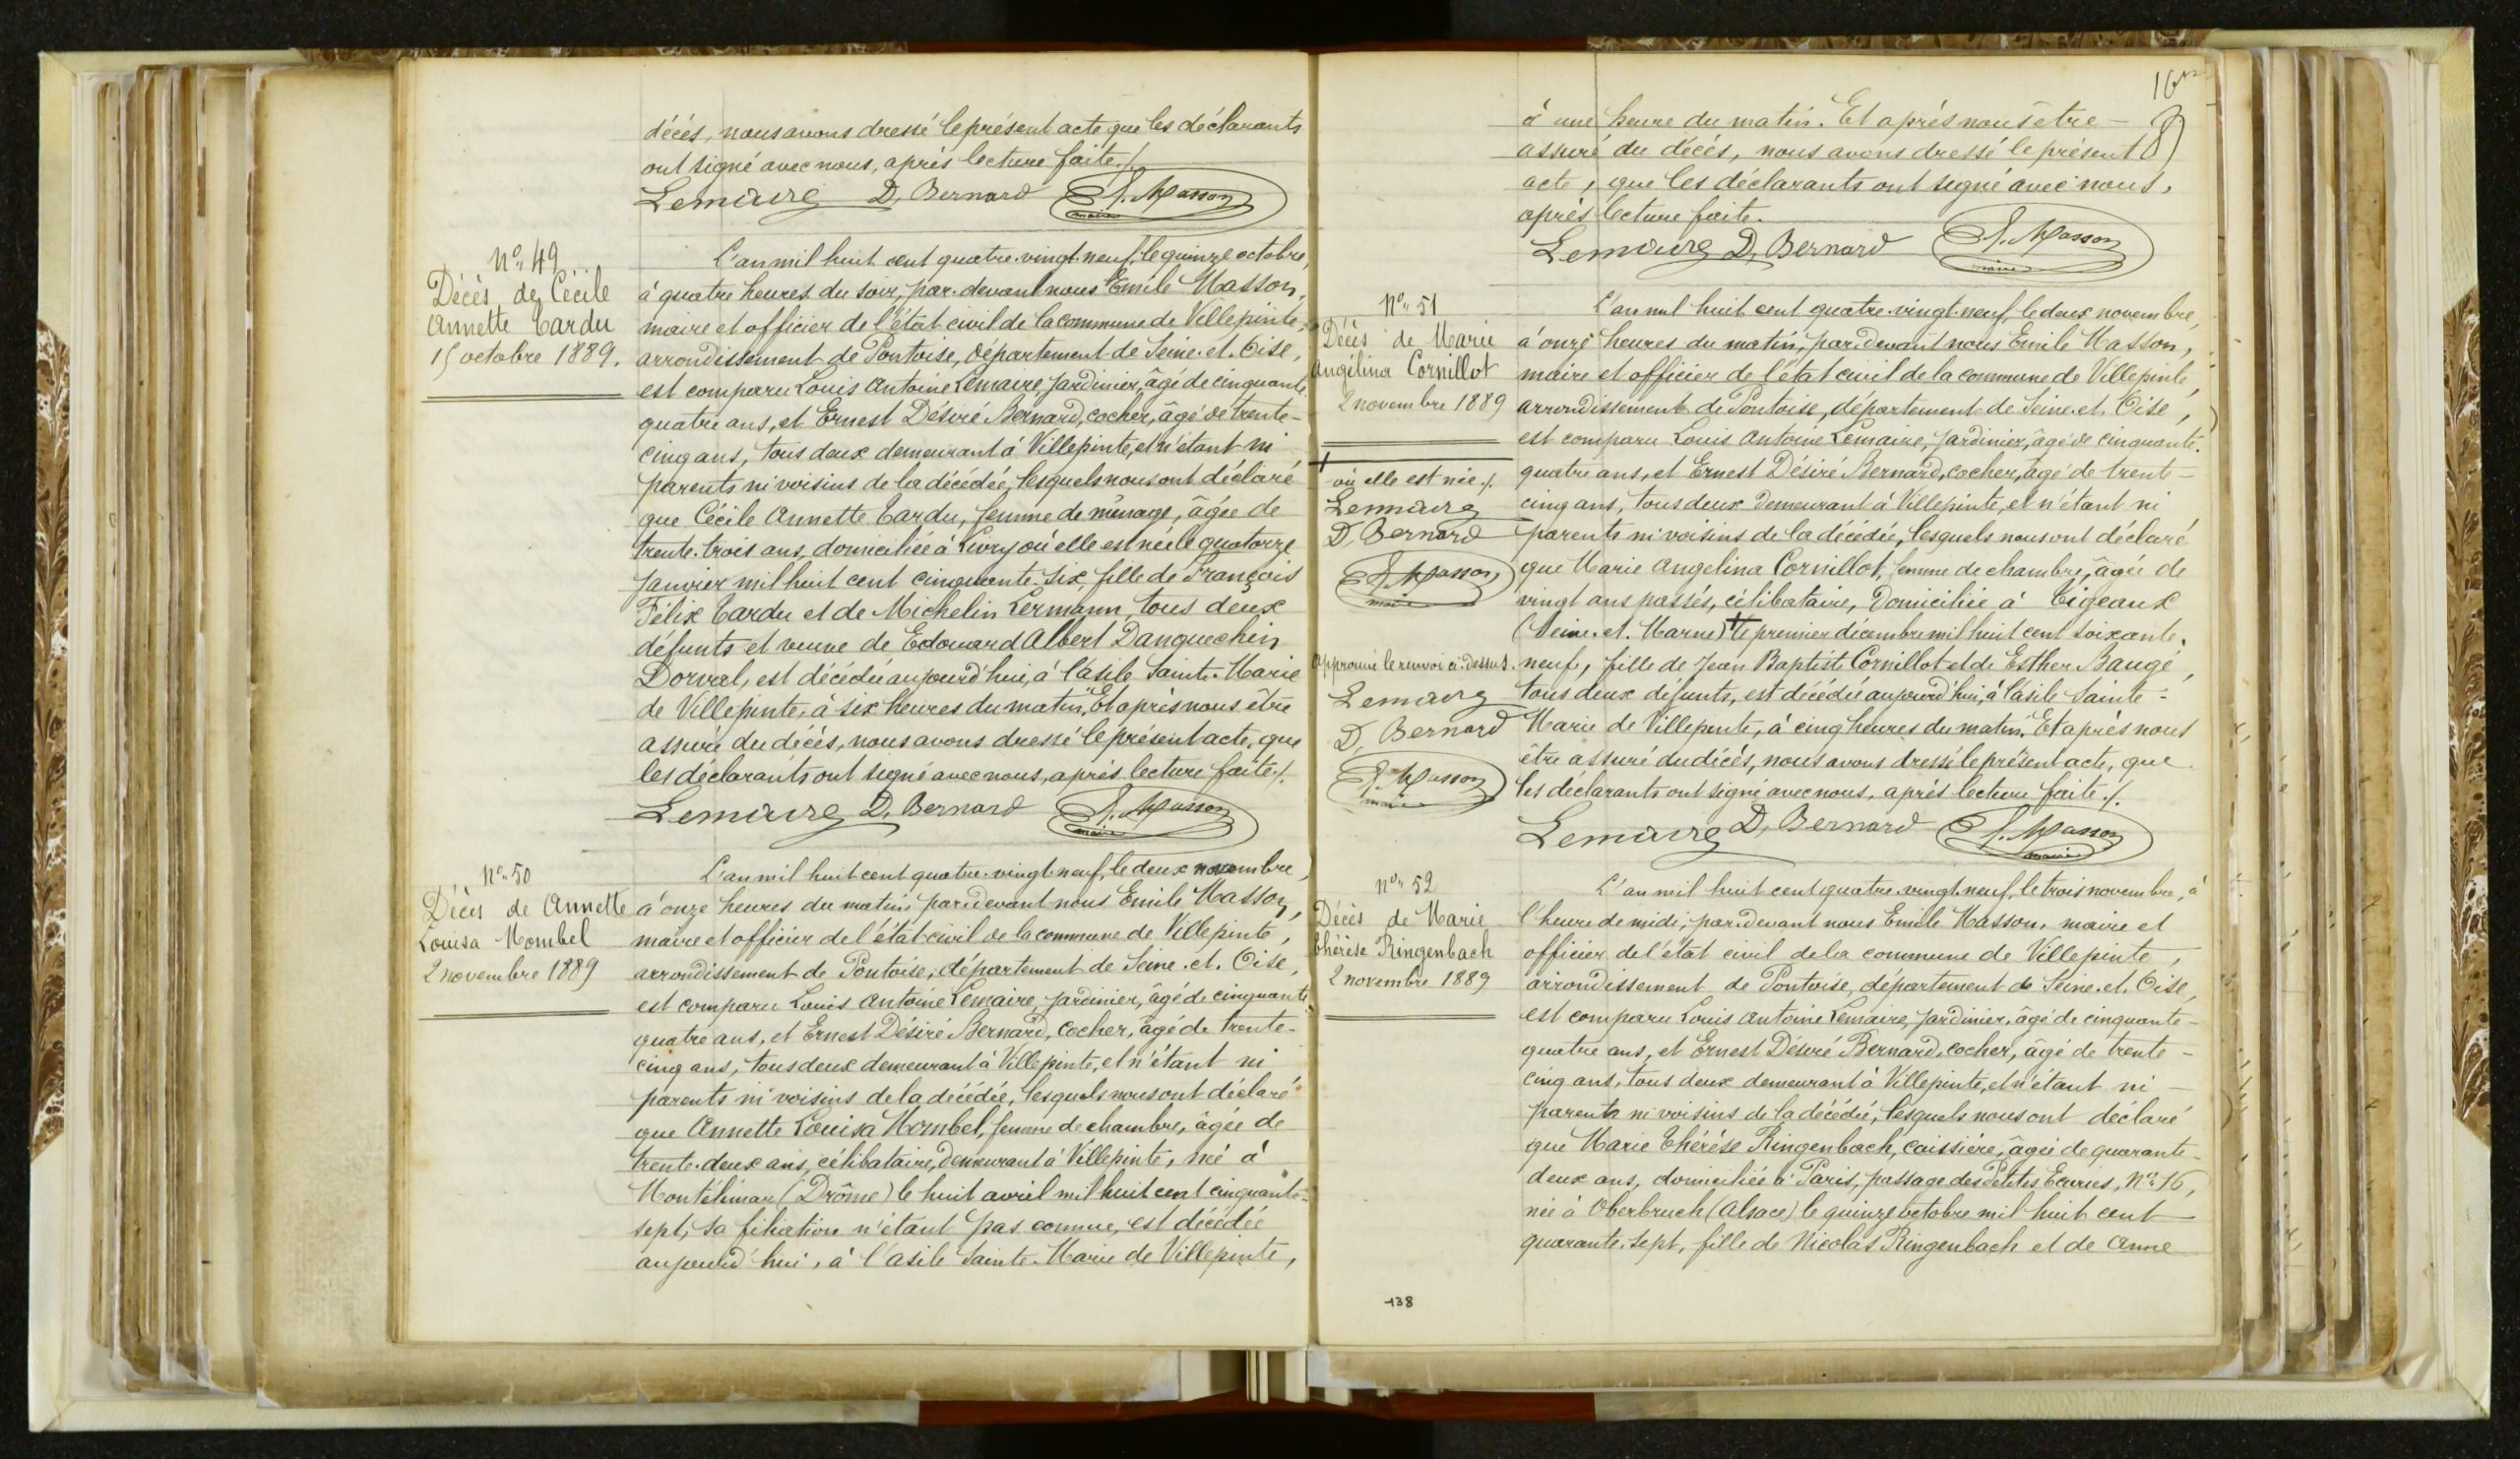 décès, nous avons dressé le présent acte que les déclarants
ont signé avec nous, après lecture faite./.
Lemaire D. Bernard E. Masson
maire
No. 49
Décès de Cécile
Annette Tardu
15 octobre 1889.
L'an mil huit cent quatre-vingt-neuf, le quinze octobre,
à quatre heures du soir, par-devant nous Emile Masson,
maire et officier de l'état civil de la commune de Villepinte,
arrondissement de Pontoise, département de Seine-et-Oise,
est comparu Louis Antoine Lemaire, jardinier, âgé de cinquante
quatre ans, et Ernest Désiré Bernard, cocher, âgé de trente-
cinq ans, tous deux demeurant à Villepinte, et n'étant ni
parents ni voisins de la décédée, lesquels nous ont déclaré
que Cécile Annette Tardu, femme de ménage, âgée de
trente-trois ans, domiciliée à Livry où elle est née le quatorze
janvier mil huit cent cinquante-six, fille de François
Félix Tardu et de Michelin Lermann, tous deux
défunts et veuve de Edouard Albert Danquechin
Dorval, est décédée aujourd'hui, à l'asile Sainte-Marie
de Villepinte, à six heures du matin. Et après nous être
assuré du décès, nous avons dressé le présent acte, que
les déclarants ont signé avec nous, après lecture faite./.
Lemaire D. Bernard E. Masson
maire
No. 50
Décès de Annette
Louisa Mombel
2 novembre 1889
L'an mil huit cent quatre-vingt-neuf, le deux novembre,
à onze heures du matin par-devant nous Emile Masson,
maire et officier de l'état civil de la commune de Villepinte,
arrondissement de Pontoise, département de Seine-et-Oise,
est comparu Louis Antoine Lemaire, jardinier, âgé de cinquante
quatre ans, et Ernest Désiré Bernard, cocher, âgé de trente-
cinq ans, tous deux demeurant à Villepinte, et n'étant ni
parents ni voisins de la décédée, lesquels nous ont déclaré
que Annette Louisa Mombel, femme de chambre, âgée de
trente-deux ans, célibataire, demeurant à Villepinte, né à
Montélimar (Drôme) le huit avril mil huit cent cinquante-
sept, sa filiation n'étant pas connue, est décédée
aujourd'hui, à l'asile Sainte-Marie de Villepinte,
16
à une heure du matin. Et après nous être
assuré du décès, nous avons dressé le présent
acte, que les déclarants ont signé avec nous,
après lecture faite.
Lemaire D. Bernard E. Masson
maire
No. 51
Décès de Marie
Angélina Cornillot
2 novembre 1889
où elle est née./.
Lemaire
D. Bernard
E. Masson
maire
Approuvé le renvoi ci-dessus.
Lemaire
D. Bernard
E. Masson
maire
L'an mil huit cent quatre-vingt-neuf, le deux novembre,
à onze heures du matin, par-devant nous Emile Masson,
maire et officier de l'état civil de la commune de Villepinte,
arrondissement de Pontoise, département de Seine-et-Oise,
est comparu Louis Antoine Lemaire, jardinier, âgé de cinquante-
quatre ans, et Ernest Désiré Bernard, cocher, âgé de trente-
cinq ans, tous deux demeurant à Villepinte, et n'étant ni
parents ni voisins de la décédée, lesquels nous ont déclaré
que Marie Angelina Cornillot, femme de chambre, âgée de
vingt ans passés, célibataire, domiciliée à Tigeaux
(Seine-et-Marne) + le premier décembre mil huit cent soixante-
neuf, fille de Jean Baptiste Cornillot et de Esther Baugé,
tous deux défunts, est décédée aujourd'hui, à l'asile Sainte-
Marie de Villepinte, à cinq heures du matin. Et après nous
être assuré du décès, nous avons dressé le présent acte, que
les déclarants ont signé avec nous, après lecture faite./.
Lemaire D. Bernard E. Masson
maire
No. 52
Décès de Marie
Thérèse Ringenbach
2 novembre 1889
L'an mil huit cent quatre-vingt-neuf, le trois novembre, à
l'heure de midi, par-devant nous Emile Masson, maire et
officier de l'état civil de la commune de Villepinte,
arrondissement de Pontoise, département de Seine-et-Oise,
est comparu Louis Antoine Lemaire, jardinier, âgé de cinquante-
quatre ans, et Ernest Désiré Bernard, cocher, âgé de trente-
cinq ans, tous deux demeurant à Villepinte, et n'étant ni
parents ni voisins de la décédée, lesquels nous ont déclaré
que Marie Thérèse Ringenbach, caissière, âgée de quarante-
deux ans, domiciliée à Paris, passage des Petites Ecuries, No. 16,
née à Oberbruck (Alsace) le quinze octobre mil huit cent
quarante-sept, fille de Nicolas Ringenbach et de Anne
138